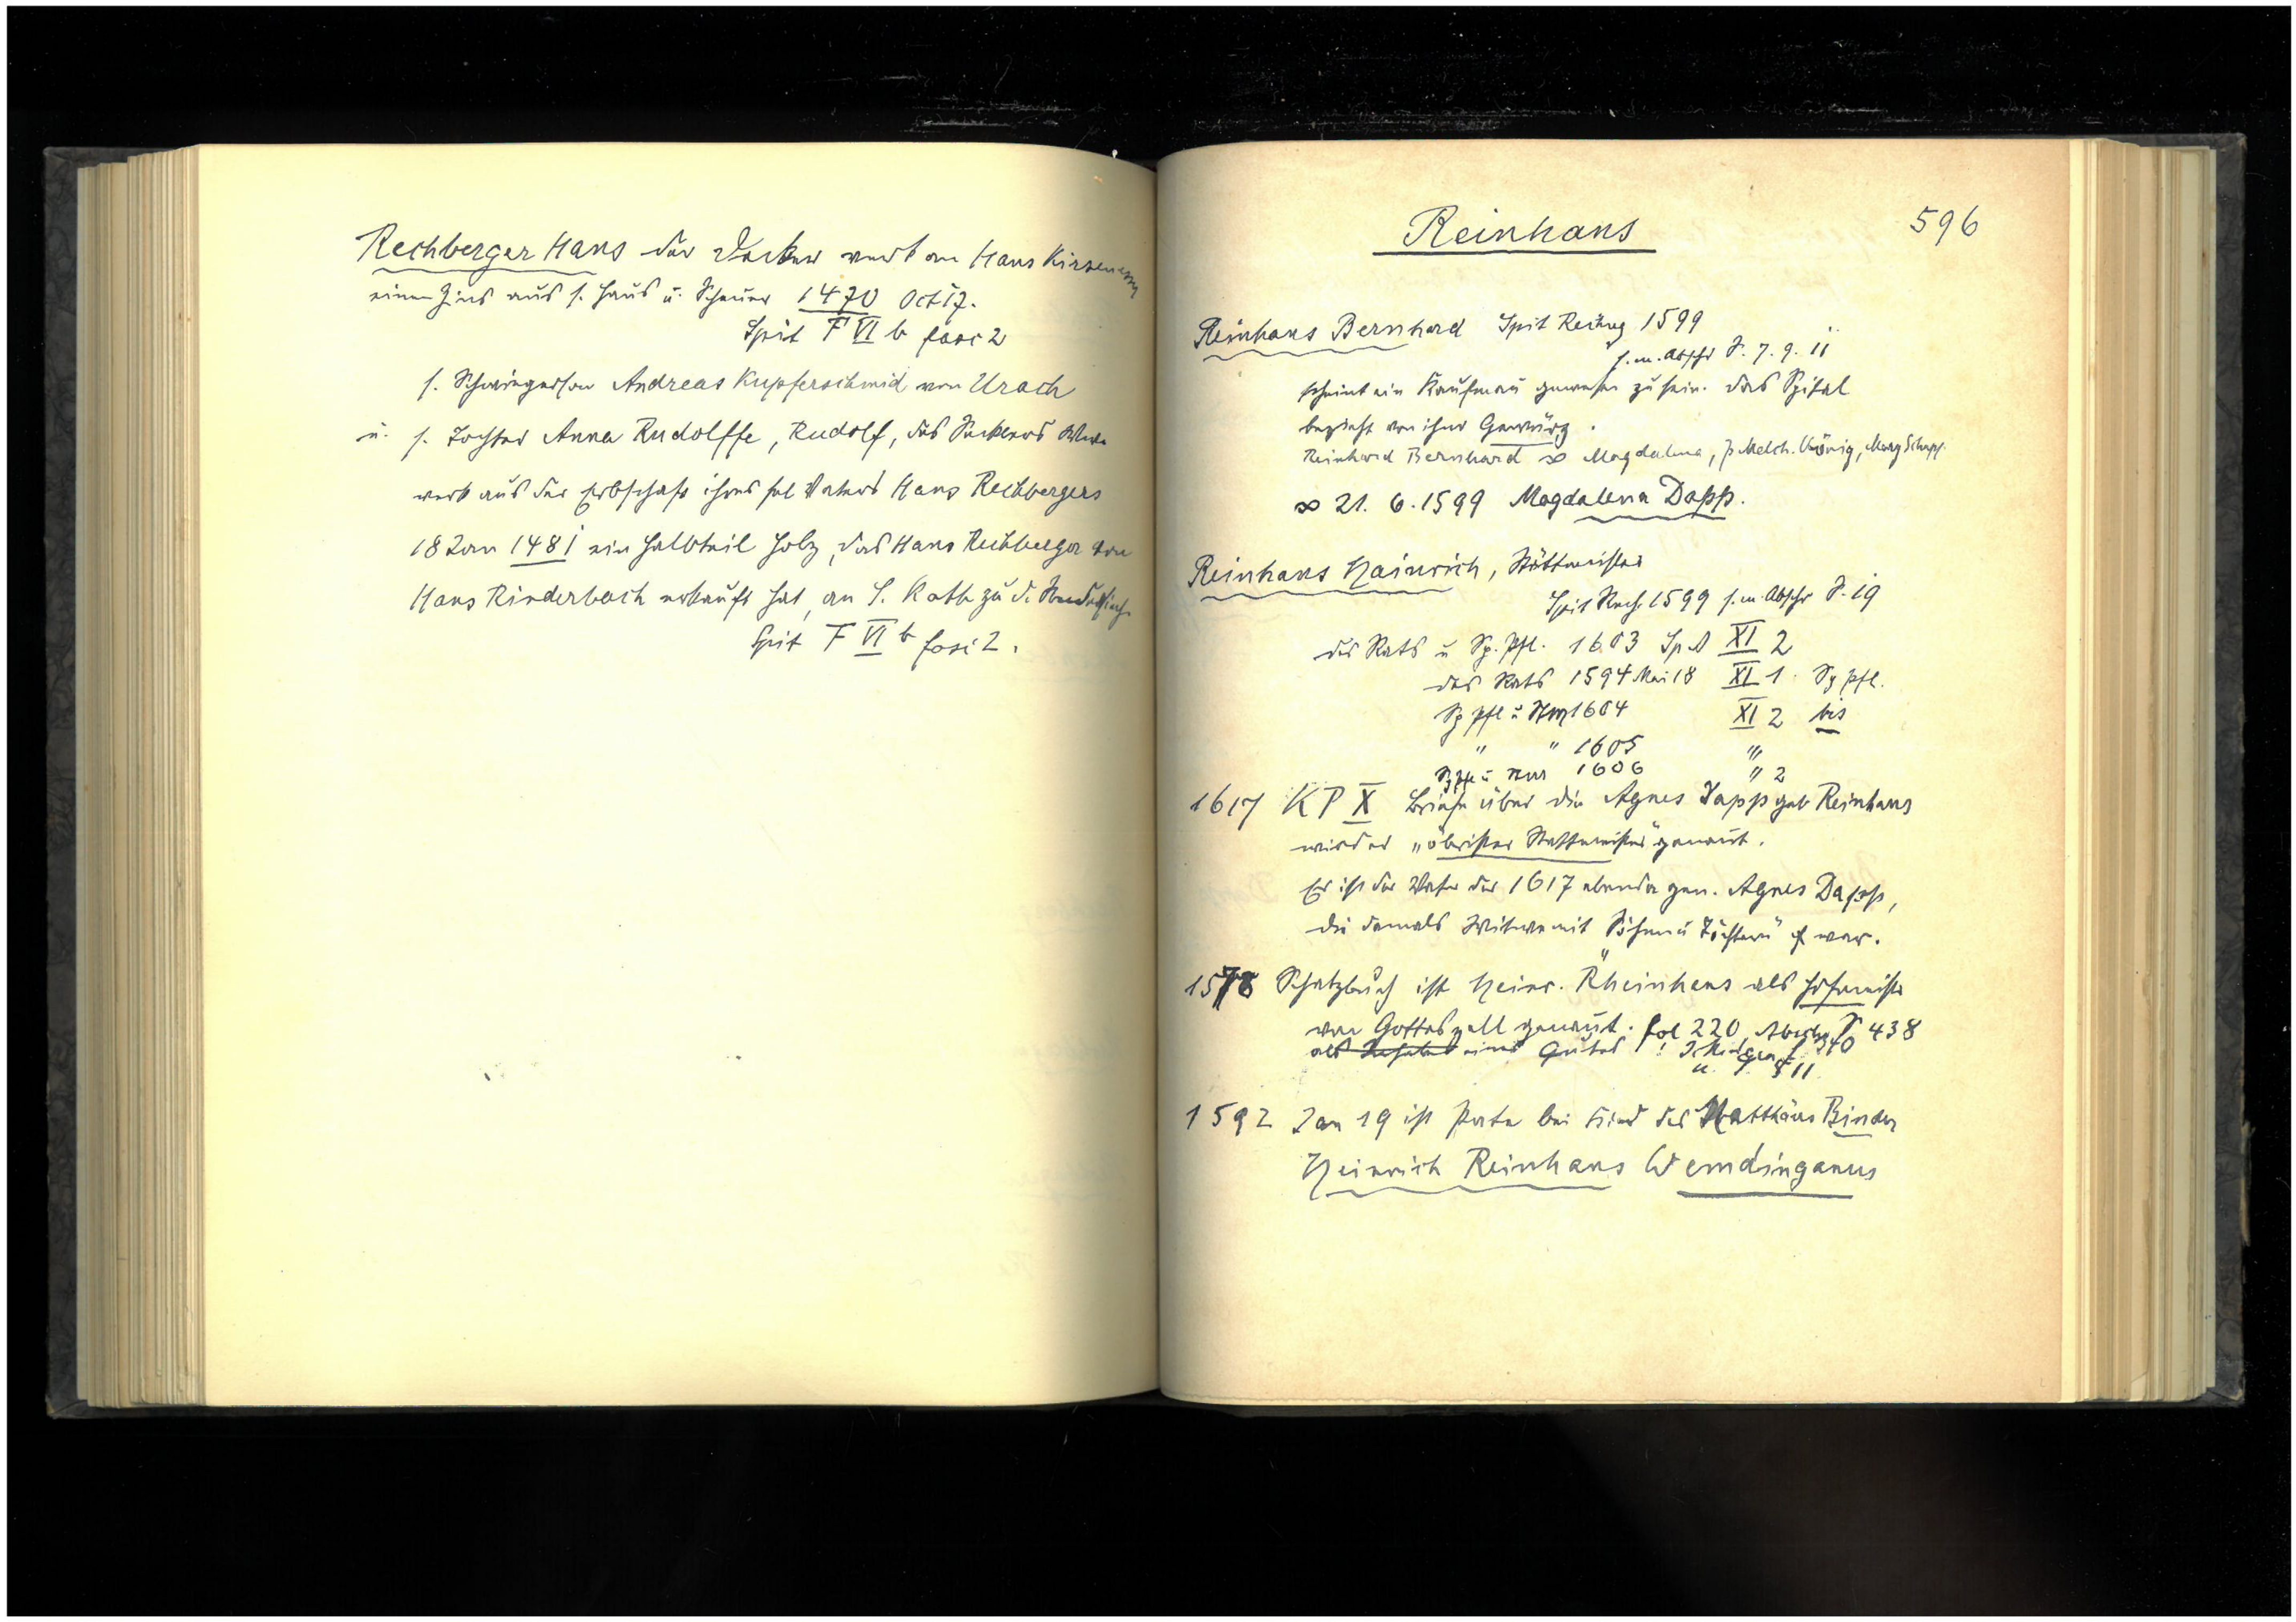 Rechberger Hans der verk an Hans
einen Zins aus s. Haus u. Scheuer 1470 Oct 17.
Spit F VI b fasc 2
s. Schwiegerson Andreas Kupferschmid von Urach
u. s. Tochter Anna Rudolffe, Rudolf, des Wwe
verk aus der Erbschaft ihres sel Vaters Hans Rechbergers
18 Jan 1481 ein Halbteil Holz, das Hans Rechberger von
Hans Rinderbach erkauft hat, an S. Kath zu d.
Spit F VI b fasc 2.
596
Reinhans
Reinhans Bernhard Spit Rechng 1599
s. m. Abschr S. 7. 9. 11
scheint ein Kaufmañ gewesen zu sein. Das Spital
bezieht von ihm Gewürz.
Reinhard Bernhard ∞ Magdalena, p Melch.
∞ 21. 6. 1599 Magdalena Dapp.
Reinhans Hainrich, Stättmeister
Spit Rech. 1599 s. m. Abschr S. 19
des Rats u Sp. Pfl. 1603 Sp A XI 2
des Rats 1594 Mai 18 XI 1 Sp Pfl.
Sp Pfl u 1604 XI 2 bis
" " 1605 "
Sp Pfl u 1606 " 2
1617 KP X Briefe über die Agnes Dapp geb Reinhans
wird er „öbrister Stattmeister" genañt.
Er ist der Vater der 1617 ebenda gen. Agnes Dapp,
die damals Witwe mit „Söhnen u Töchtern" war.
1578 Schatzbuch ist Heinr. Rheinhans als Hofmeister
von Gotteszell genañt. fol 220, Abschr S 438
als eines Gutes ! 340
u. S 11
1592 Jan 19 ist Pate bei Kind des Matthäus Binder
Heinrich Reinhans Wemdinganus